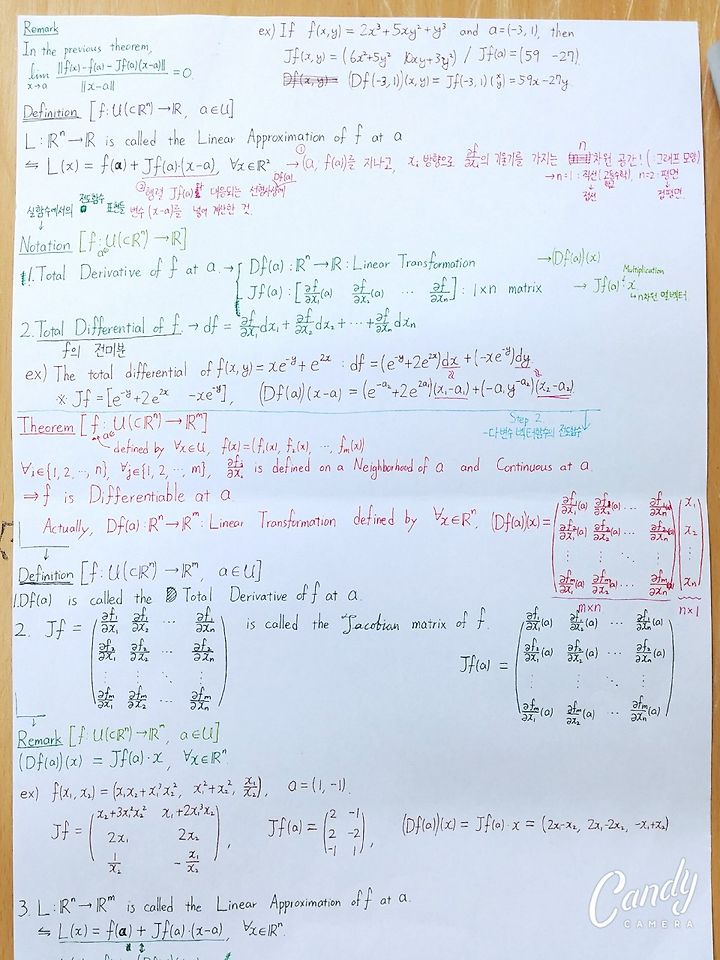 Remark
In the previous theorem,
lim x→a ‖f(x)-f(a)-Jf(a)(x-a)‖ / ‖x-a‖ = 0.
ex) If f(x,y) = 2x³+5xy²+y³ and a=(-3, 1), then
Jf(x,y) = (6x²+5y² 10xy+3y²) / Jf(a) = (59 -27).
(Df(-3,1))(x,y) = Jf(-3,1)(x y) = 59x-27y
Definition [f: U(⊂ℝⁿ)→ℝ, a∈U]
L: ℝⁿ→ℝ is called the Linear Approximation of f at a
⇋ L(x) = f(a) + Jf(a)·(x-a), ∀x∈ℝ² → ① (a, f(a))를 지나고, xᵢ 방향으로 ∂f/∂xᵢ의 기울기를 가지는 n차원 공간! (∵그래프 모양)
→ n=1 : 직선(고등수학), n=2 : 평면
접선 접평면
② 행렬 Jf(a)에 대응되는 선형사상에 Df(a)
변수 (x-a)를 넣어 계산한 것.
실함수에서의 도함수 표현들
Notation [f: U(⊂ℝⁿ)→ℝ]
a∈
1. Total Derivative of f at a → Df(a) : ℝⁿ→ℝ : Linear Transformation → (Df(a))(x)
Jf(a) : [∂f/∂x₁(a) ∂f/∂x₂(a) ⋯ ∂f/∂xₙ(a)] : 1×n matrix → Jf(a)·x
Multiplication
→ n차원 열벡터
2. Total Differential of f. → df = ∂f/∂x₁ dx₁ + ∂f/∂x₂ dx₂ + ⋯ + ∂f/∂xₙ dxₙ
f의 전미분
ex) The total differential of f(x,y) = xe^-y + e^2x : df = (e^-y+2e^2x)dx + (-xe^-y)dy.
※ Jf = [e^-y+2e^2x -xe^-y], (Df(a))(x-a) = (e^-a₂+2e^2a₁)(x₁-a₁) + (-a₁e^-a₂)(x₂-a₂)
Step 2.
-다변수 벡터함수의 전도함수
Theorem [f: U(⊂ℝⁿ)→ℝᵐ]
a∈
defined by ∀x∈U, f(x) = (f₁(x), f₂(x), ⋯, fₘ(x))
∀i∈{1, 2, ⋯, n}, ∀j∈{1, 2, ⋯, m}, ∂fⱼ/∂xᵢ is defined on a Neighborhood of a and Continuous at a.
⇒ f is Differentiable at a
Actually, Df(a): ℝⁿ→ℝᵐ: Linear Transformation defined by ∀x∈ℝⁿ, (Df(a))(x) =
∂f₁/∂x₁(a) ∂f₁/∂x₂(a) ⋯ ∂f₁/∂xₙ(a) x₁
∂f₂/∂x₁(a) ∂f₂/∂x₂(a) ⋯ ∂f₂/∂xₙ(a) x₂
⋮ ⋮ ⋱ ⋮ ⋮
∂fₘ/∂x₁(a) ∂fₘ/∂x₂(a) ⋯ ∂fₘ/∂xₙ(a) xₙ
m×n n×1
Definition [f: U(⊂ℝⁿ)→ℝᵐ, a∈U]
1. Df(a) is called the Total Derivative of f at a.
2. Jf = is called the Jacobian matrix of f.
∂f₁/∂x₁ ∂f₁/∂x₂ ⋯ ∂f₁/∂xₙ
∂f₂/∂x₁ ∂f₂/∂x₂ ⋯ ∂f₂/∂xₙ
⋮ ⋮ ⋱ ⋮
∂fₘ/∂x₁ ∂fₘ/∂x₂ ⋯ ∂fₘ/∂xₙ
Jf(a) =
∂f₁/∂x₁(a) ∂f₁/∂x₂(a) ⋯ ∂f₁/∂xₙ(a)
∂f₂/∂x₁(a) ∂f₂/∂x₂(a) ⋯ ∂f₂/∂xₙ(a)
⋮ ⋮ ⋱ ⋮
∂fₘ/∂x₁(a) ∂fₘ/∂x₂(a) ⋯ ∂fₘ/∂xₙ(a)
Remark [f: U(⊂ℝⁿ)→ℝᵐ, a∈U]
(Df(a))(x) = Jf(a)·x, ∀x∈ℝⁿ.
ex) f(x₁,x₂) = (x₁x₂+x₁³x₂², x₁²+x₂², x₁/x₂), a=(1, -1).
Jf = (x₂+3x₁²x₂² x₁+2x₁³x₂
2x₁ 2x₂
1/x₂ -x₁/x₂),
Jf(a) = (2 -1
2 -2
-1 1),
(Df(a))(x) = Jf(a)·x = (2x₁-x₂, 2x₁-2x₂, -x₁+x₂)
3. L: ℝⁿ→ℝᵐ is called the Linear Approximation of f at a.
⇋ L(x) = f(a) + Jf(a)·(x-a), ∀x∈ℝⁿ.
Candy
CAMERA